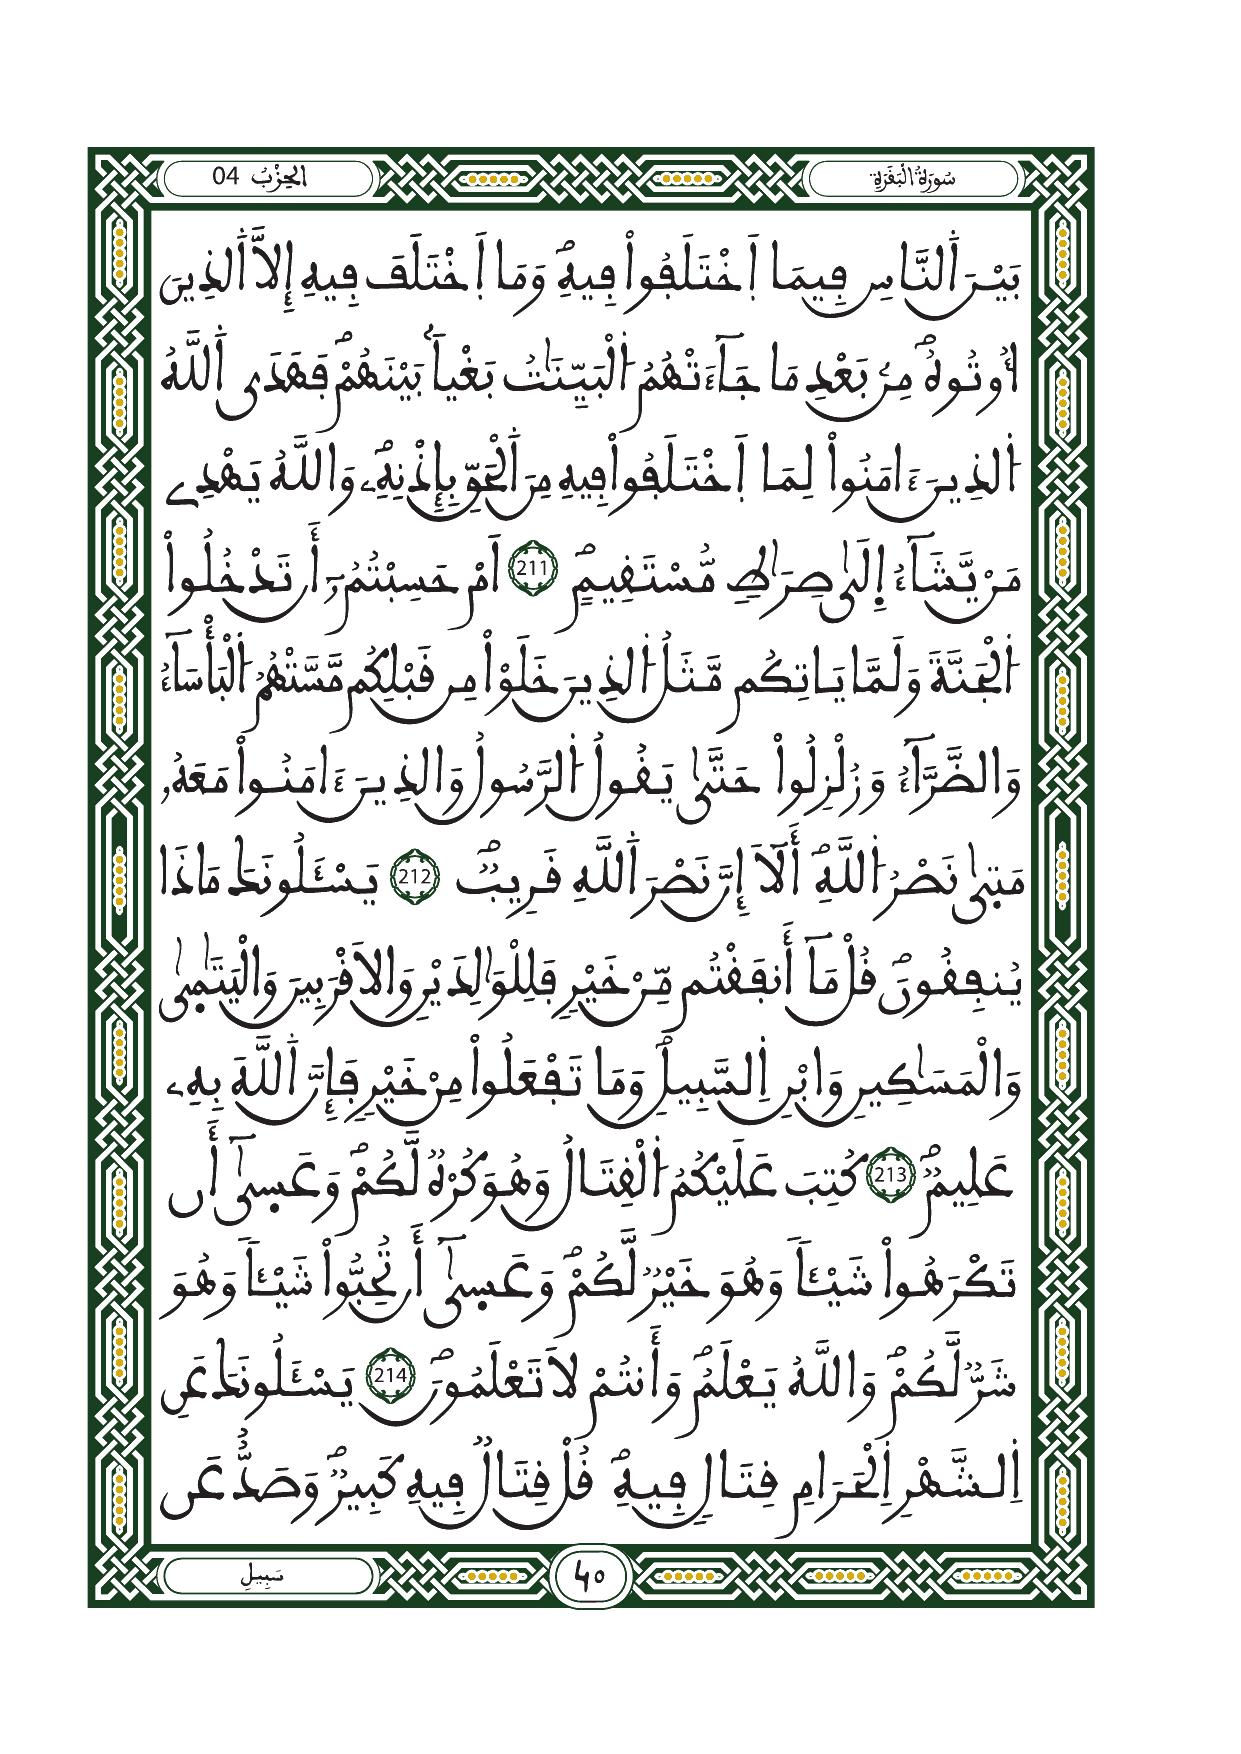 سُورَةُ الْبَقَرَةِ
الحِزْبُ 04
بَيْنَ اَ۬لنَّاسِ فِيمَا اَ۪خْتَلَفُواْ فِيهِۖ وَمَا اَ۪خْتَلَفَ فِيهِ إِلَّا اَ۬لذِينَ
أُوتُوهُۖ مِنۢ بَعْدِ مَا جَآءَتْهُمُ اُ۬لْبَيِّنَٰتُ بَغْياَۢ بَيْنَهُمْۖ فَهَدَى اَ۬للَّهُ
اُ۬لذِينَ ءَامَنُواْ لِمَا اَ۪خْتَلَفُواْ فِيهِ مِنَ اَ۬لْحَقِّ بِإِذْنِهِۦۖ وَاللَّهُ يَهْدِے
مَنْ يَّشَآءُ اِ۪لَىٰ صِرَٰطٖ مُّسْتَقِيمٍۖ 211 اَمْ حَسِبْتُمُۥٓ أَن تَدْخُلُواْ
اُ۬لْجَنَّةَ وَلَمَّا يَاتِكُم مَّثَلُ اُ۬لذِينَ خَلَوْاْ مِن قَبْلِكُم مَّسَّتْهُمُ اُ۬لْبَأْسَآءُ
وَالضَّرَّآءُ وَزُلْزِلُواْ حَتَّىٰ يَقُولُ اُ۬لرَّسُولُ وَالذِينَ ءَامَنُواْ مَعَهُۥ
مَتَىٰ نَصْرُ اُ۬للَّهِۖ أَلَآ إِنَّ نَصْرَ اَ۬للَّهِ قَرِيبٞۖ 212 يَسْـَٔلُونَكَ مَاذَا
يُنفِقُونَۖ قُلْ مَآ أَنفَقْتُم مِّنْ خَيْرٖ فَلِلْوَٰلِدَيْنِ وَالَاقْرَبِينَ وَالْيَتَٰمَىٰ
وَالْمَسَٰكِينِ وَابْنِ اِ۬لسَّبِيلِۖ وَمَا تَفْعَلُواْ مِنْ خَيْرٖ فَإِنَّ اَ۬للَّهَ بِهِۦ
عَلِيمٞۖ 213 كُتِبَ عَلَيْكُمُ اُ۬لْقِتَالُ وَهُوَ كُرْهٞ لَّكُمْۖ وَعَسَىٰٓ أَن
تَكْرَهُواْ شَيْـٔاٗ وَهُوَ خَيْرٞ لَّكُمْۖ وَعَسَىٰٓ أَن تُحِبُّواْ شَيْـٔاٗ وَهُوَ
شَرّٞ لَّكُمْۖ وَاللَّهُ يَعْلَمُۖ وَأَنتُمْ لَا تَعْلَمُونَۖ 214 يَسْـَٔلُونَكَ عَنِ
اِ۬لشَّهْرِ اِ۬لْحَرَامِ قِتَالٖ فِيهِۖ قُلْ قِتَالٞ فِيهِ كَبِيرٞۖ وَصَدٌّ عَن
سَبِيلِ
40